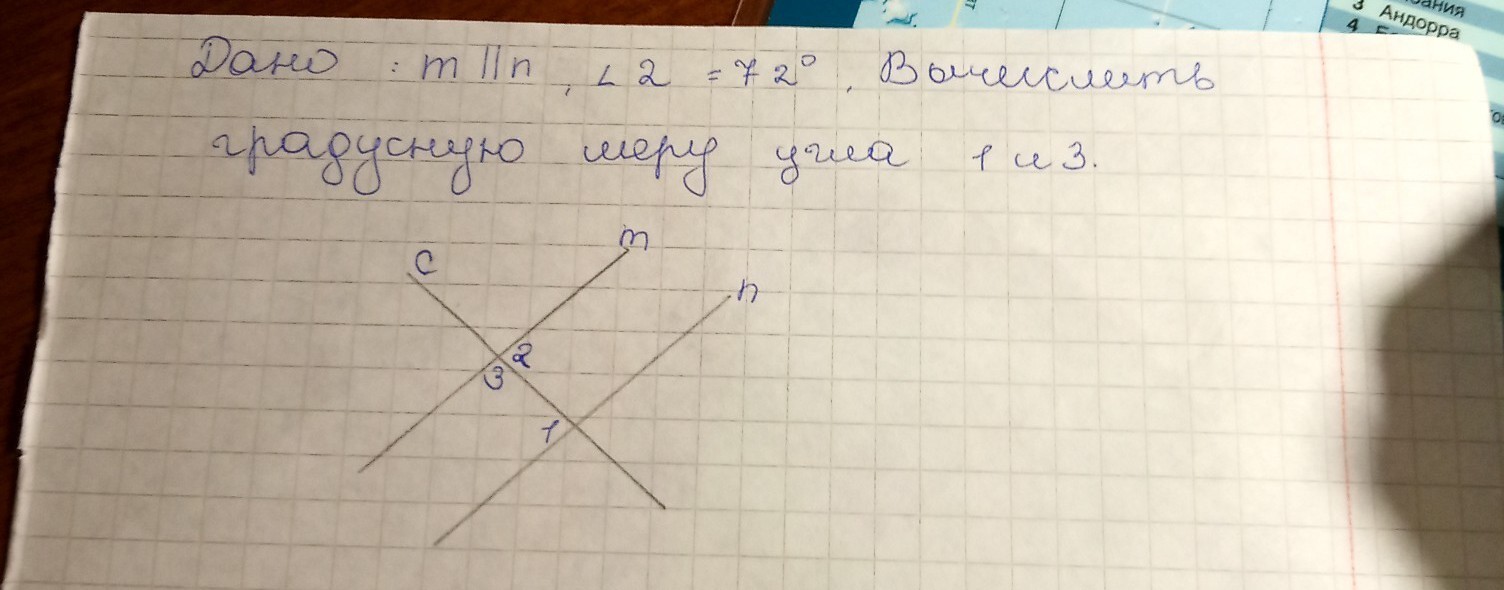 Дано : m || n , ∠ 2 = 72° . Вычислить
градусную меру угла 1 и 3.
c
m
n
2
3
1
3 Андорра
4